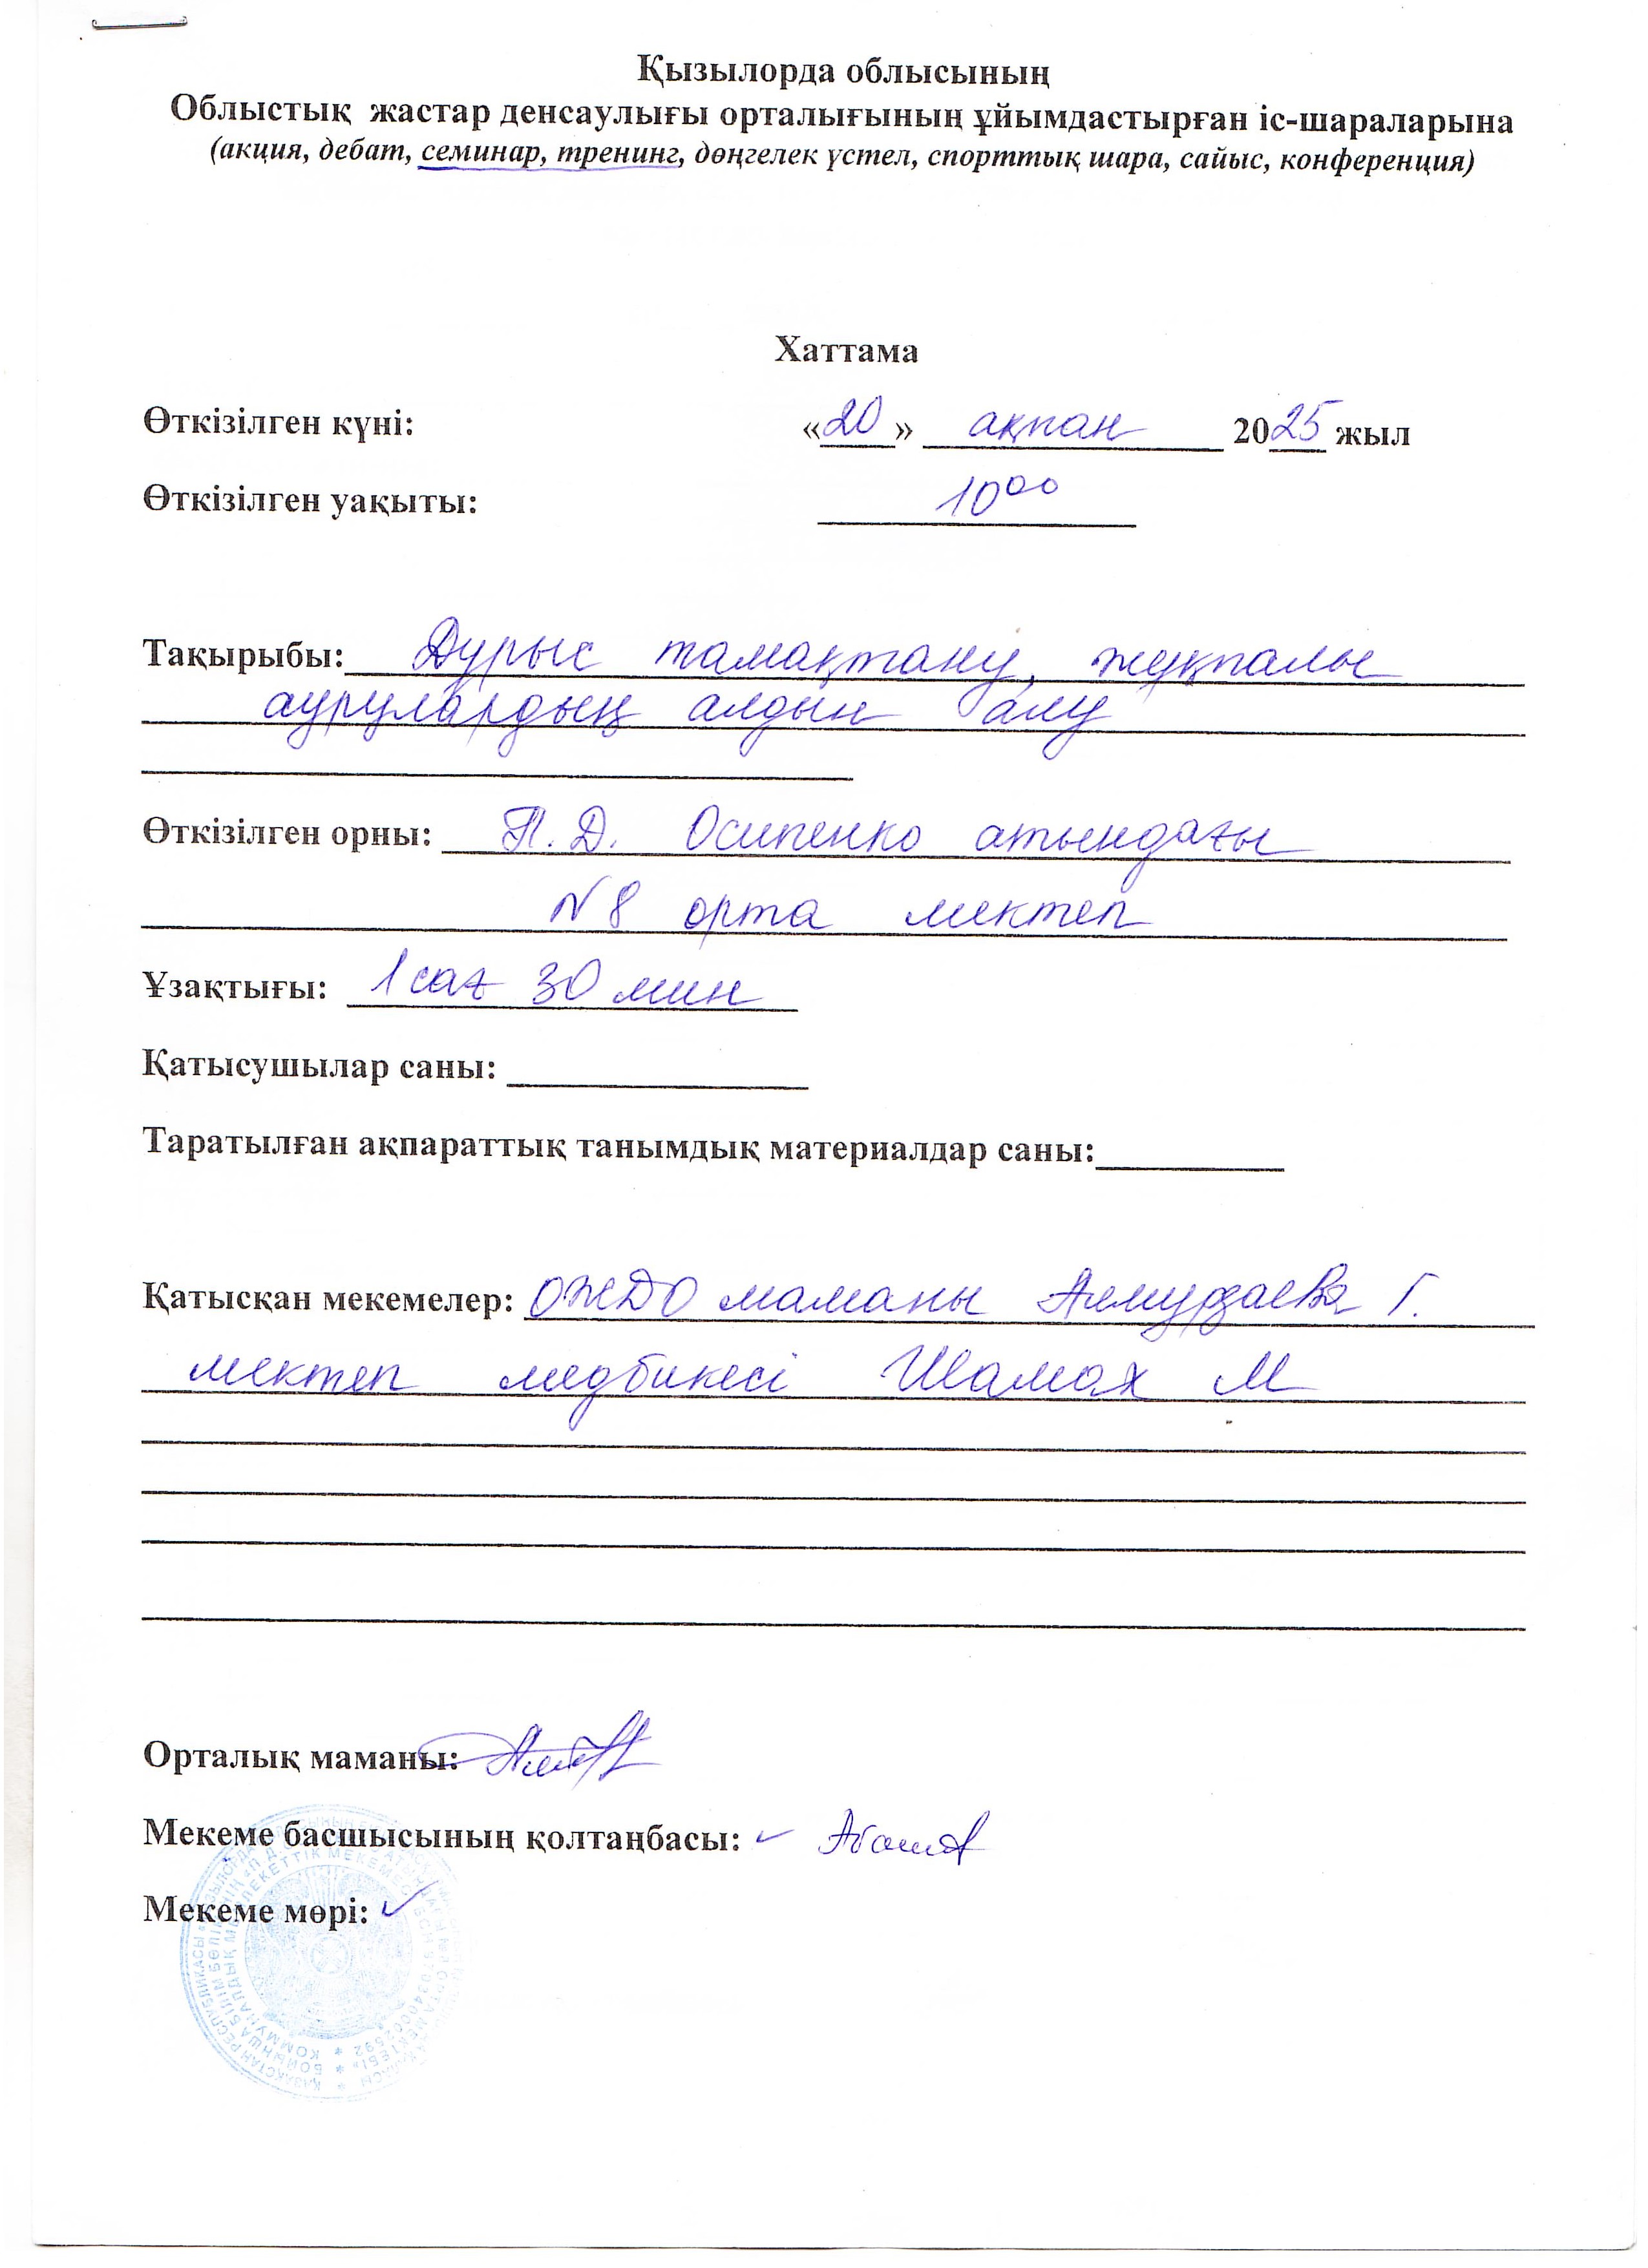 Қызылорда облысының
Облыстық жастар денсаулығы орталығының ұйымдастырған іс-шараларына
(акция, дебат, семинар, тренинг, дөңгелек үстел, спорттық шара, сайыс, конференция)
Хаттама
Өткізілген күні: «20» ақпан 2025 жыл
Өткізілген уақыты: 10⁰⁰
Тақырыбы: Дұрыс тамақтану, жұқпалы
аурулардың алдын алу
Өткізілген орны: П.Д. Осипенко атындағы
№8 орта мектеп
Ұзақтығы: 1 сағ 30 мин
Қатысушылар саны:
Таратылған ақпараттық танымдық материалдар саны:
Қатысқан мекемелер: ОЖДО маманы Г.
мектеп медбикесі Шамах М
Орталық маманы:
Мекеме басшысының қолтаңбасы:
Мекеме мөрі: